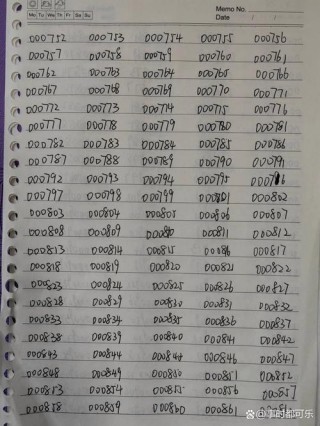 Memo No.
Mo Tu We Th Fr Sa Su
Date
000752 000753 000754 000755 000756
000757 000758 000759 000760 000761
000762 000763 000764 000765 000766
000767 000768 000769 000770 000771
000772 000773 000774 000775 000776
000777 000778 000779 000780 000781
000782 000783 000784 000785 000786
000787 000788 000789 000790 000791
000792 000793 000794 000795
000797 000798 000799 000801 000802
000803 000804 000805 000806 000807
000808 000809 000811 000812
000813 000814 000815 000817
000818 000819 000820 000821 000822
000823 000824 000825 000826 000827
000828 000829 000830 000831 000832
000833 000834 000835 000836 000837
000838 000839 000840 000841 000842
000843 000844 000846 000847
000848 000849 000850 000851 000852
000853 000854 000855 000856 000857
000858 000859 000860 000861